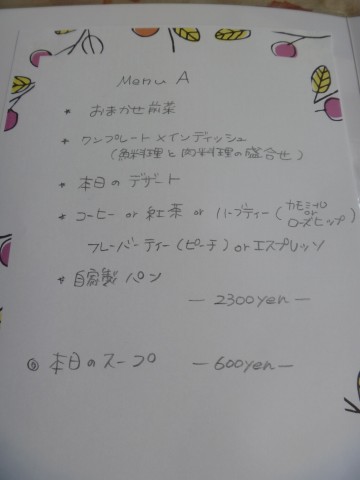 Menu A
* おまかせ前菜
* ワンプレートメインディッシュ
(魚料理と肉料理の盛合せ)
* 本日のデザート
* コーヒー or 紅茶 or ハーブティー(カモミール or ローズヒップ)
フレーバーティー(ピーチ) or エスプレッソ
* 自家製パン
— 2300yen —
◎ 本日のスープ — 600yen —